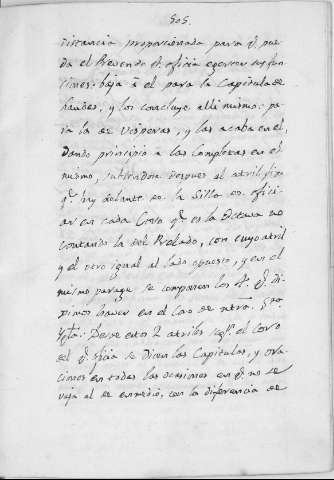 505.
distancia proporcionada para q.e pue-
da el Prevendo q.e oficia egercer sus fun-
ciones: baja á el para la Capitula de
Laudes, y los concluye alli mismo: pa-
ra la de Visperas, y las acaba en el,
Dando principio a las Completas en el
mismo, subiendose despues al atril fijo
q.e hay delante de la Silla de ofici-
ar en cada Coro q.e es la Octava no
contando la del Prelado, con cuyo atril
y el otro igual al lado opuesto, y en el
mismo parage se comparen los 2. q.e di-
gimos haver en el Coro de ntra.
Desde estos 2 atriles seg.n el Coro
el q.e oficia se dicen las Capitulas, y ora-
ciones en todas las ocasiones en q.e no se
vaja al de enmedio, con la diferencia de